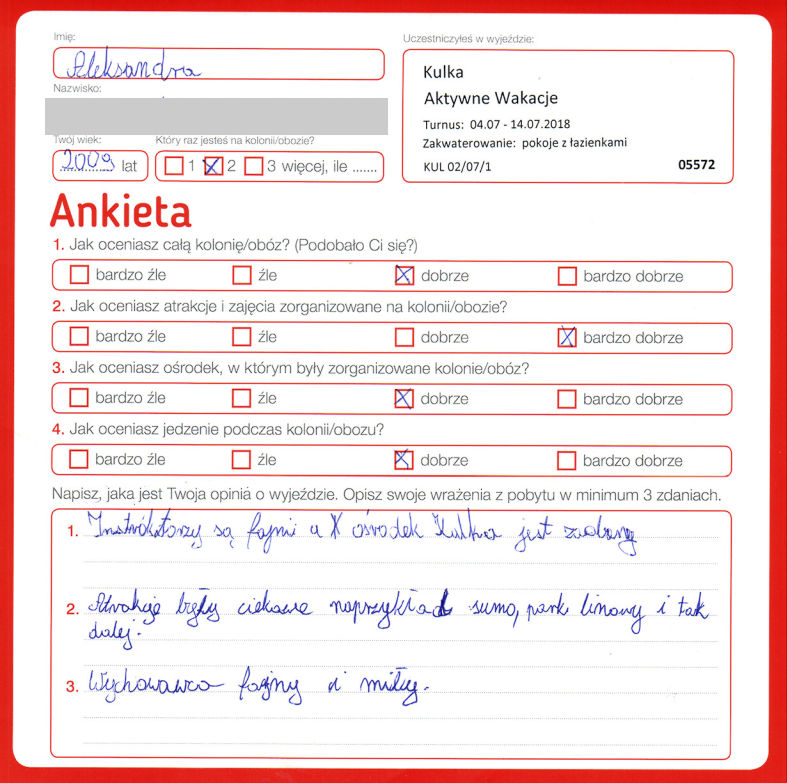 Imię:
Aleksandra
Nazwisko:
Twój wiek:
2009 lat
Który raz jesteś na kolonii/obozie?
1 2 3 więcej, ile .......
Uczestniczyłeś w wyjeździe:
Kulka
Aktywne Wakacje
Turnus: 04.07 - 14.07.2018
Zakwaterowanie: pokoje z łazienkami
KUL 02/07/1 05572
Ankieta
1. Jak oceniasz całą kolonię/obóz? (Podobało Ci się?)
bardzo źle źle dobrze bardzo dobrze
2. Jak oceniasz atrakcje i zajęcia zorganizowane na kolonii/obozie?
bardzo źle źle dobrze bardzo dobrze
3. Jak oceniasz ośrodek, w którym były zorganizowane kolonie/obóz?
bardzo źle źle dobrze bardzo dobrze
4. Jak oceniasz jedzenie podczas kolonii/obozu?
bardzo źle źle dobrze bardzo dobrze
Napisz, jaka jest Twoja opinia o wyjeździe. Opisz swoje wrażenia z pobytu w minimum 3 zdaniach.
1. Instróktorzy są fajni a ośrodek Kulka jest
2. Atrakcje były ciekawe naprzykład sumo, park linowy i tak
dalej.
3. Wychowawca fajny i miły.